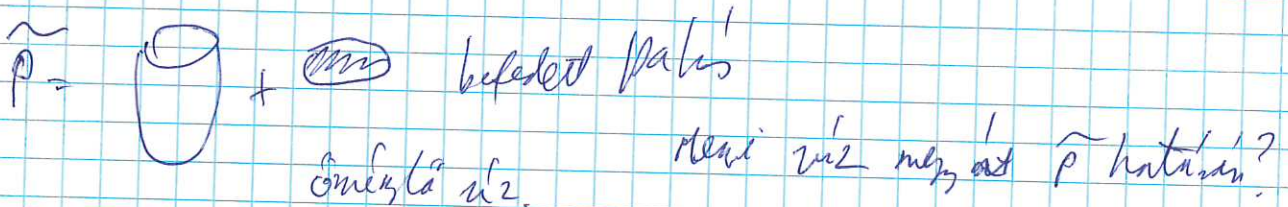 p̃ = + befedett palás
ömlő víz. Meni víz megy át p̃ határán?